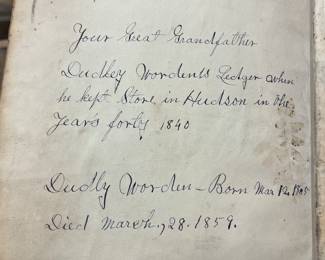 Your Great Grandfather
Dudley Worden's Ledger when
he kept Store in Hudson in the
Years forty 1840
Dudly Worden - Born Mar 12, 1805
Died March, 28. 1859.